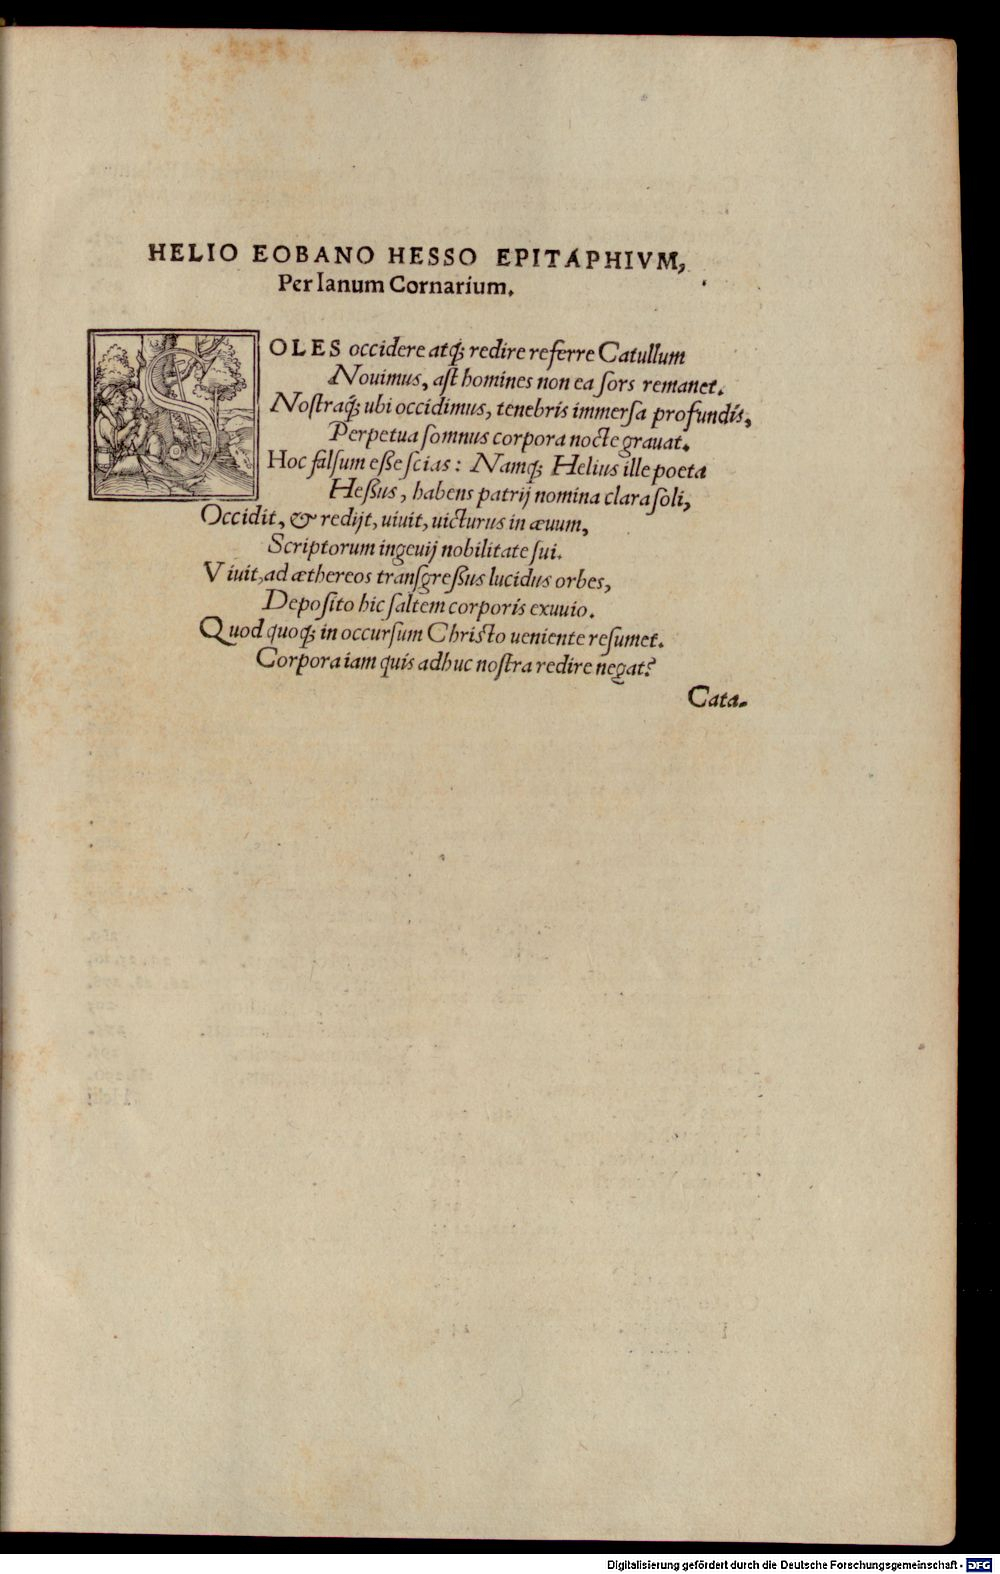 HELIO EOBANO HESSO EPITAPHIVM,
Per Ianum Cornarium.
SOLES occidere atq; redire referre Catullum
Nouimus, ast homines non ea sors remanet.
Nostraq; ubi occidimus, tenebris immersa profundis,
Perpetua somnus corpora nocte grauat.
Hoc falsum esse scias: Namq; Helius ille poeta
Hessus, habens patrij nomina clara soli,
Occidit, & redijt, uiuit, uicturus in æuum,
Scriptorum ingeuij nobilitate sui.
Viuit, ad æthereos transgressus lucidus orbes,
Deposito hic saltem corporis exuuio.
Quod quoq; in occursum Christo ueniente resumet.
Corpora iam quis adhuc nostra redire negat?
Cata-
Digitalisierung gefördert durch die Deutsche Forschungsgemeinschaft - DFG